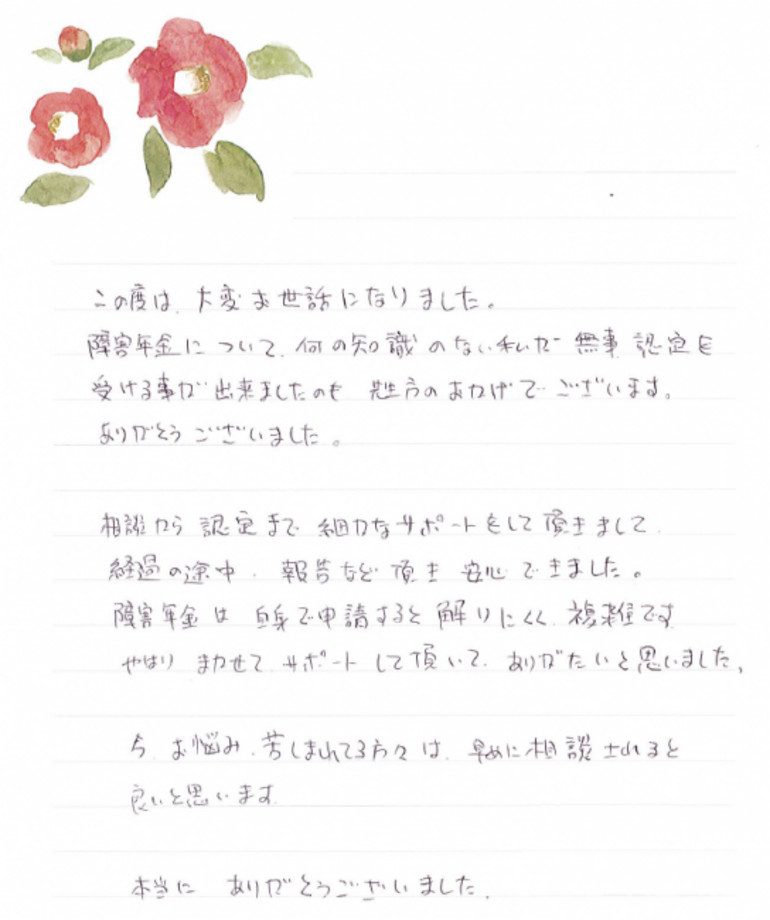 この度は、大変お世話になりました。
障害年金について、何の知識のない私が無事認定を
受ける事が出来ましたのも先生方のおかげでございます。
ありがとうございました。
相談から認定まで細かなサポートをして頂きまして、
経過の途中、報告など頂き安心できました。
障害年金は自身で申請すると解りにくく、複雑です
やはりまかせてサポートして頂いて、ありがたいと思いました、
今、お悩み、苦しまれてる方々は、早めに相談されると
良いと思います
本当にありがとうございました、